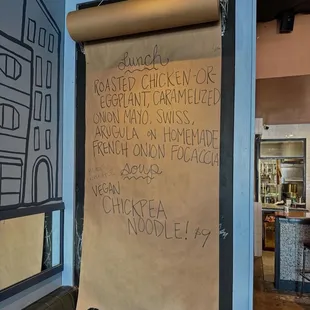 Lunch
ROASTED CHICKEN-OR-
EGGPLANT, CARAMELIZED
ONION MAYO, SWISS,
ARUGULA ON HOMEMADE
FRENCH ONION FOCACCIA
SOUP
VEGAN
CHICKPEA
NOODLE!